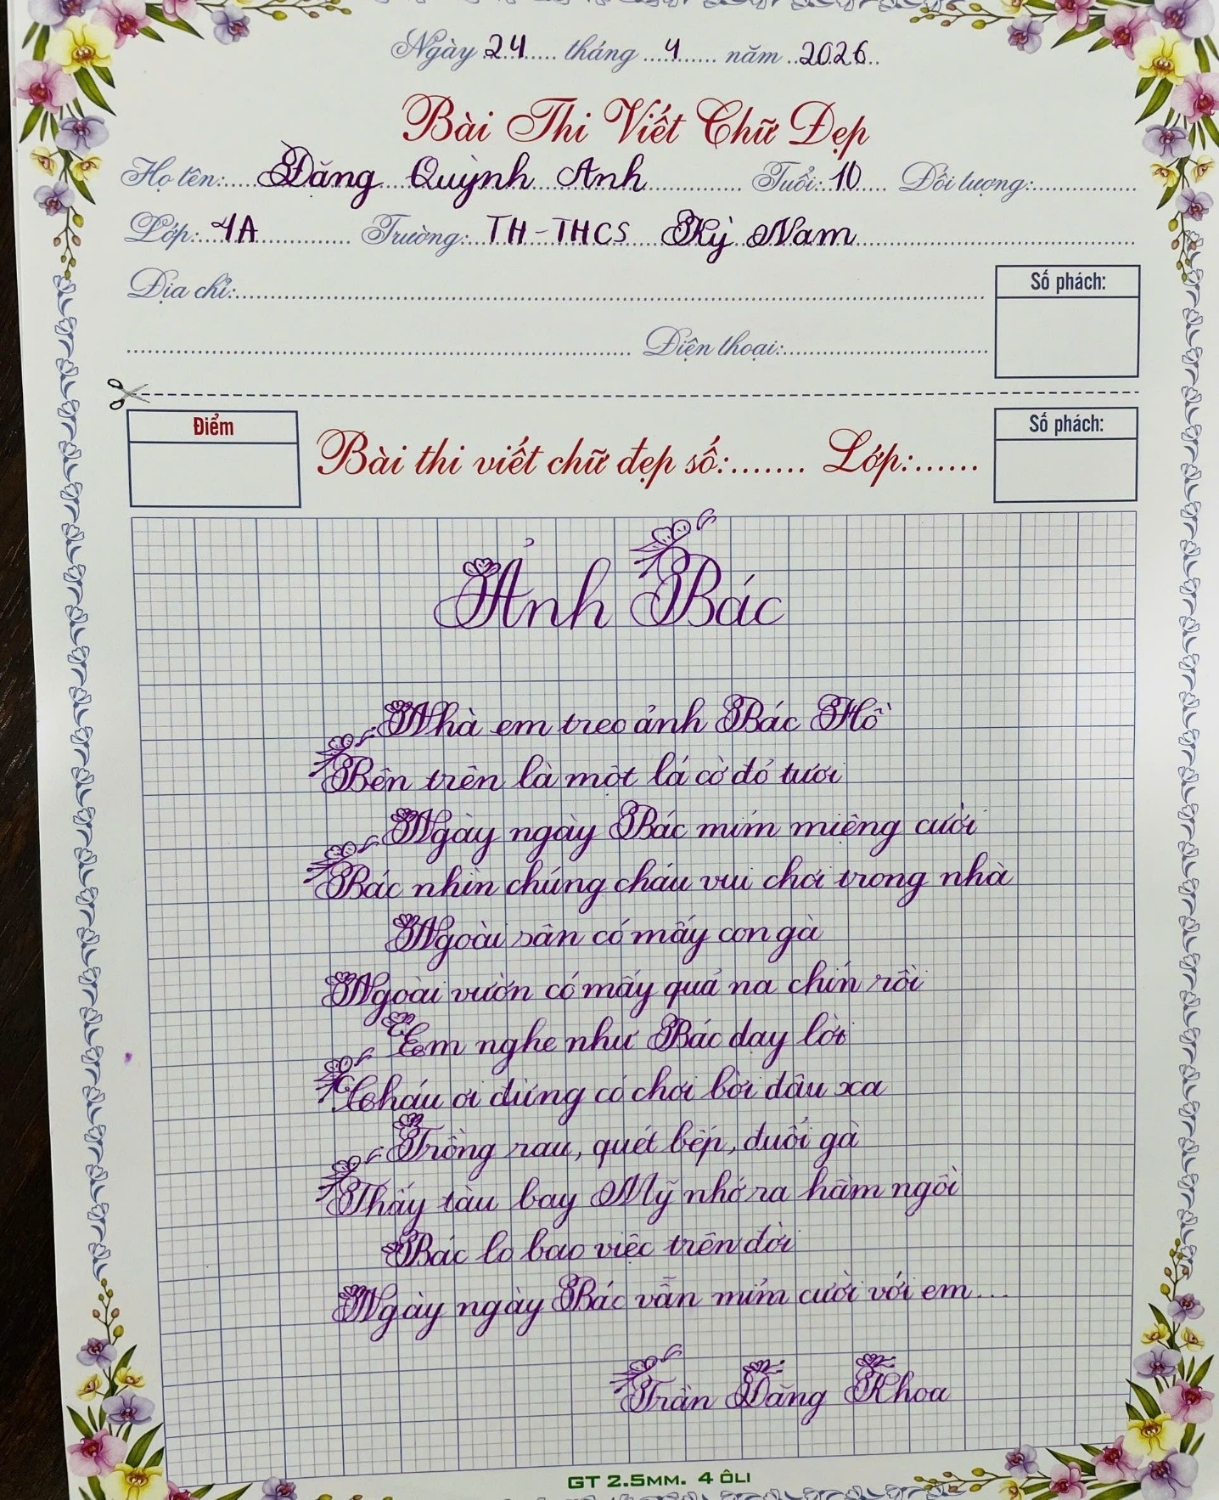 Ngày 24 tháng 4 năm 2026
Bài Thi Viết Chữ Đẹp
Họ tên: Đăng Quỳnh Anh Tuổi: 10 Đối tượng:
Lớp: 4A Trường: TH-THCS Kỳ Nam
Địa chỉ: Số phách:
Điện thoại:
Điểm Bài thi viết chữ đẹp số: Lớp: Số phách:
Ảnh Bác
Nhà em treo ảnh Bác Hồ
Bên trên là một lá cờ đỏ tươi
Ngày ngày Bác mỉm miệng cười
Bác nhìn chúng cháu vui chơi trong nhà
Ngoài sân có mấy con gà
Ngoài vườn có mấy quả na chín rồi
Em nghe như Bác dạy lời
Cháu ơi đừng có chơi bời đâu xa
Trồng rau, quét bếp, đuổi gà
Thấy tàu bay Mỹ nhớ ra hầm ngồi
Bác lo bao việc trên đời
Ngày ngày Bác vẫn mỉm cười với em...
Trần Đăng Khoa
GT 2.5MM. 4 ÔLI